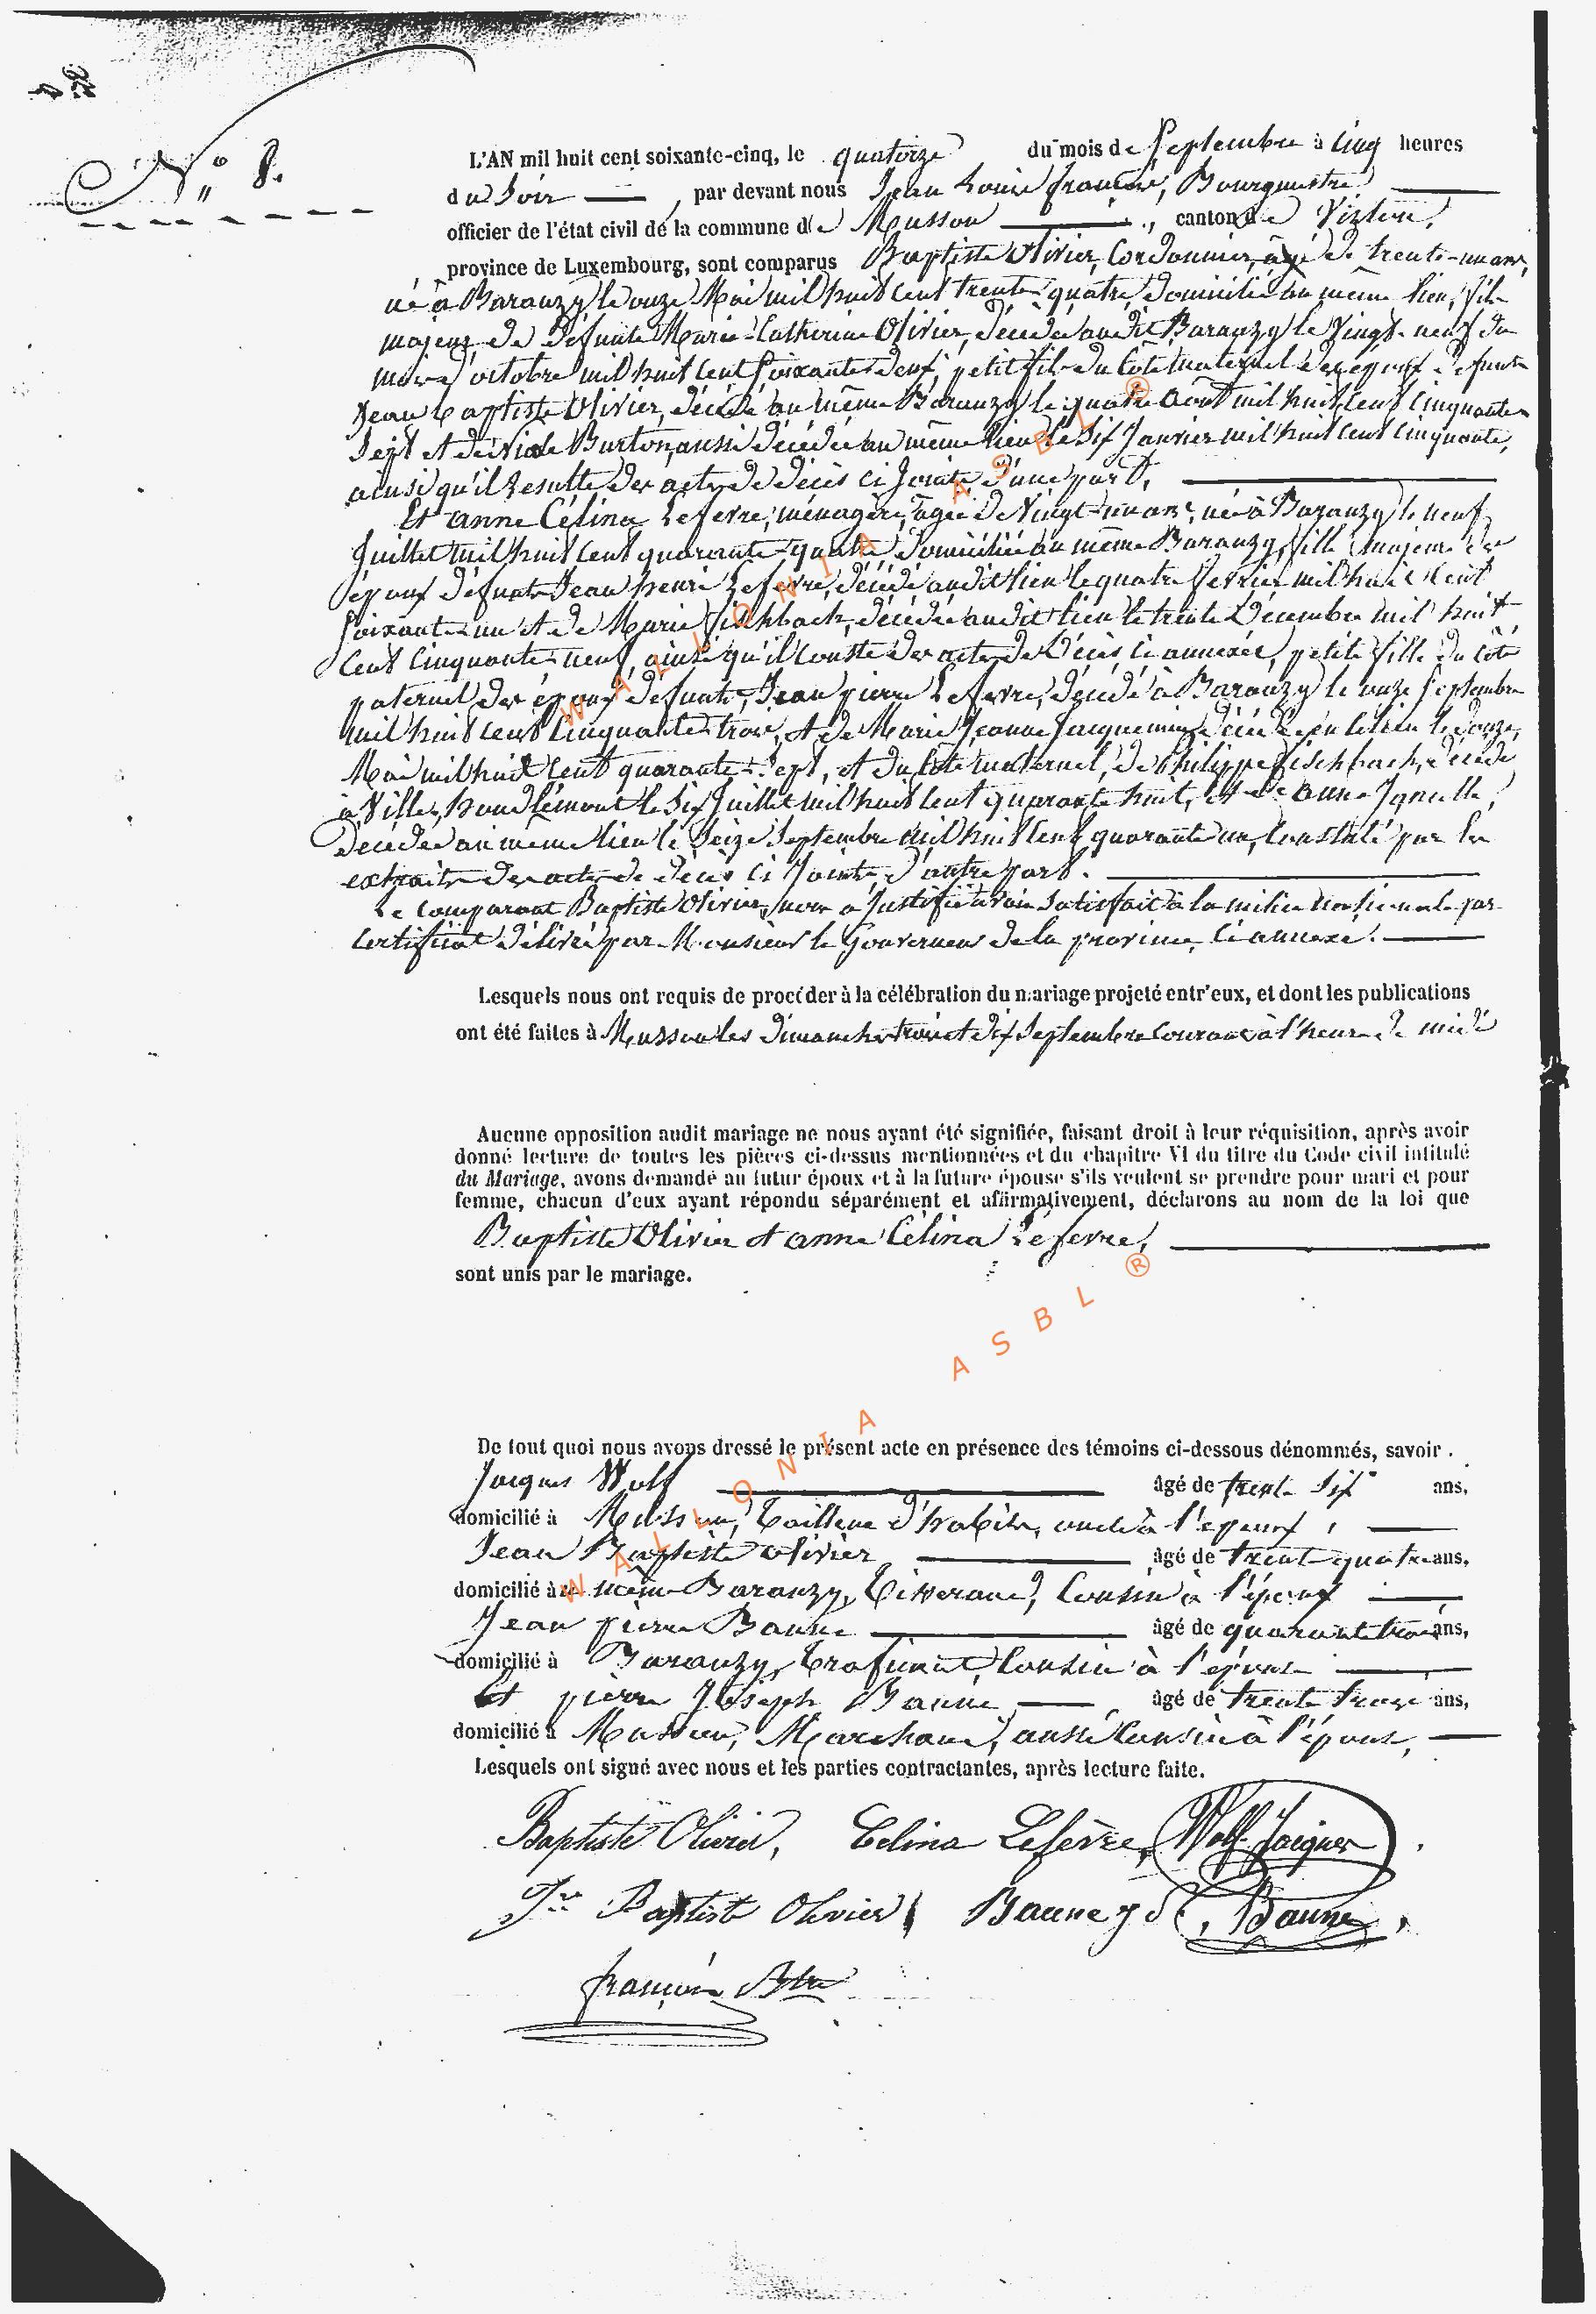 N° 8.
L'AN mil huit cent soixante-cinq, le quatorze du mois de Septembre à cinq heures
du soir par devant nous Jean Louis François, Bourgmestre
officier de l'état civil de la commune de Musson, canton de Virton,
province de Luxembourg, sont comparus Baptiste Olivier, Cordonnier, âgé de trente-un ans,
né à Baranzy, le onze Mai mil huit cent trente-quatre, domicilié au même lieu, fils
majeur de défunte Marie-Catherine Olivier, décédée audit Baranzy le vingt-neuf du
mois d'octobre mil huit cent soixante-deux, petit fils du côté maternel des époux défunts
Jean Baptiste Olivier, décédé au même Baranzy le quatre août mil huit cent cinquante
Sept et de Burton, aussi décédée au même lieu le dix Janvier mil huit cent cinquante,
ainsi qu'il resulte des actes de décès ci joints, d'une part,
Et anne Célina Lefevre, ménagère, âgée de vingt-un ans, née à Baranzy le neuf
Juillet mil huit cent quarante-quatre, domiciliée au même Baranzy, fille majeure des
époux défunts Jean henri Lefevre, décédé audit lieu le quatre février mil huit cent
soixante-un et de Marie Fischbach, décédée audit lieu le trente Décembre mil huit
cent cinquante-neuf, ainsi qu'il conste des actes de Décès ci annexés, petite fille du côté
paternel des époux défunts, Jean pierre Lefevre, décédé à Baranzy le onze Septembre
mil huit cent cinquante-trois, et de Marie Jeanne Jacquemin, décédée en ce lieu le douze
Mai mil huit cent quarante-Sept, et du côté maternel, de Philippe Fischbach, décédé
à Ville-houdlémont le Six Juillet mil huit cent quarante huit, et de anne
Décédée au même lieu le Seize Septembre mil huit cent quarante un, constaté par les
extraits des actes de décès ci Joints, d'autre part.
Le comparant Baptiste Olivier, nous a justifié avoir satisfait à la milice nationale par
certificat délivré par Monsieur le Gouverneur de la province, ci annexé.
Lesquels nous ont requis de procéder à la célébration du mariage projeté entr'eux, et dont les publications
ont été faites à Musson les dimanches trois et dix Septembre courant à l'heure de midi
Aucune opposition audit mariage ne nous ayant été signifiée, faisant droit à leur réquisition, après avoir
donné lecture de toutes les pièces ci-dessus mentionnées et du chapitre VI du titre du Code civil intitulé
du Mariage, avons demandé au futur époux et à la future épouse s'ils veulent se prendre pour mari et pour
femme, chacun d'eux ayant répondu séparément et affirmativement, déclarons au nom de la loi que
Baptiste Olivier et anne Célina Lefevre,
sont unis par le mariage.
De tout quoi nous avons dressé le présent acte en présence des témoins ci-dessous dénommés, savoir.
Jacques Wolf âgé de trente six ans,
domicilié à Musson, Tailleur d'habits, oncle à l'epoux,
Jean Baptiste Olivier âgé de trente-quatre ans,
domicilié à même Baranzy, Tisserand, Cousin à l'époux
Jean pierre Baune âgé de quarante trois ans,
domicilié à Baranzy, Trafiquant, Cousin à l'épouse
Et pierre Joseph Baune âgé de trente trois ans,
domicilié à Musson, Marchand, aussi Cousin à l'épouse,
Lesquels ont signé avec nous et les parties contractantes, après lecture faite.
Baptiste Olivier, Celina Lefèvre, Wolf Jacques
Jn Baptiste Olivier Baune, Baune,
françois Btre
WALLONIA ASBL ®
WALLONIA ASBL ®